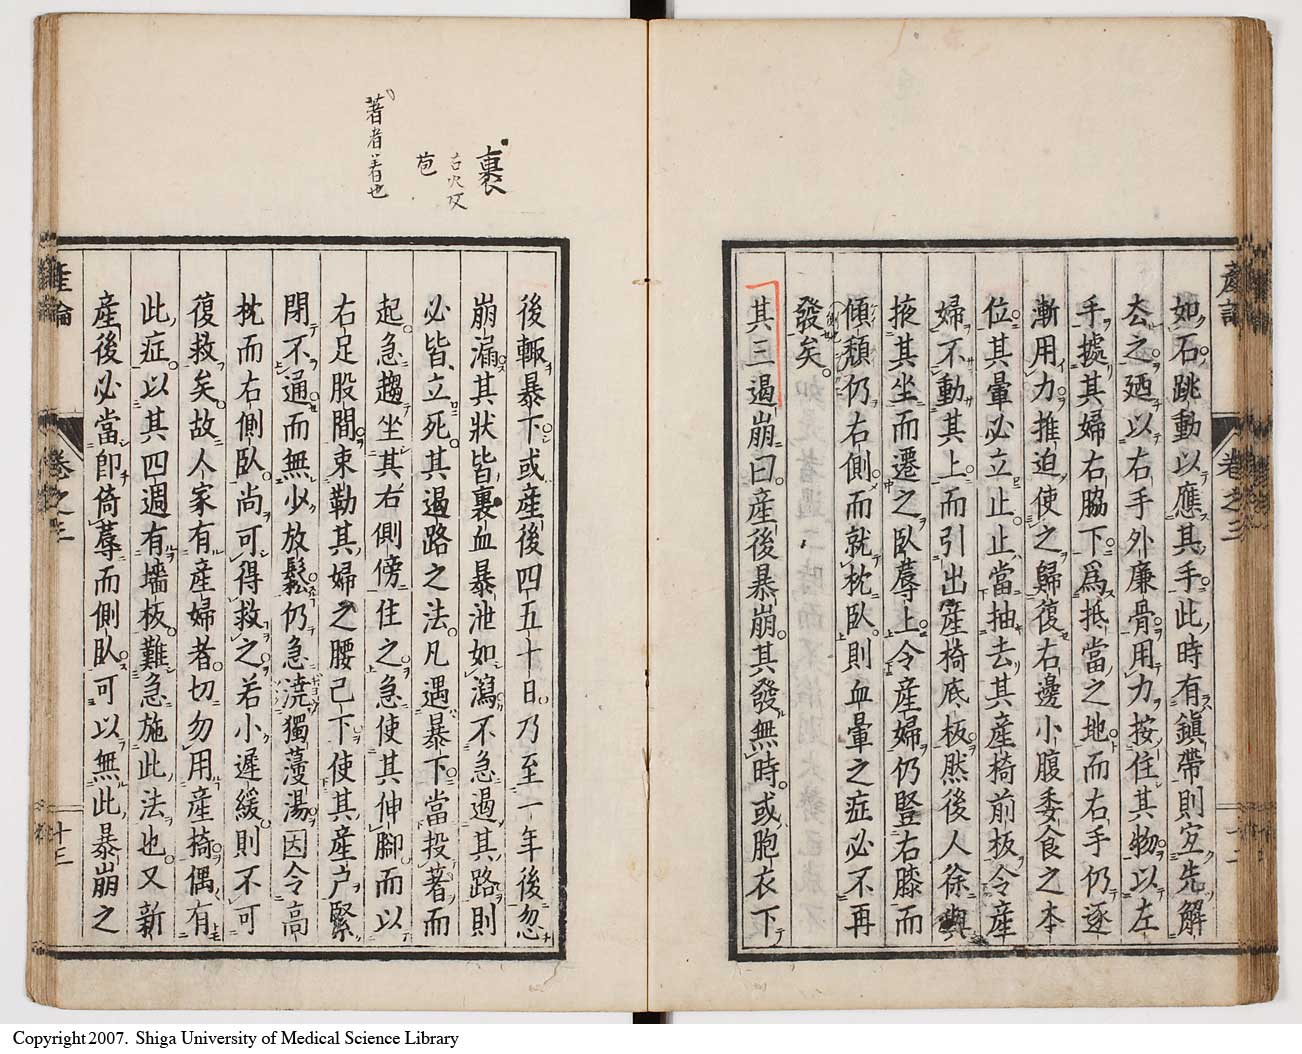 如石跳動以應其手此時有鎮帶則宜先解
去之廼以右手外廉骨用力按住其物以左
手㨿其婦右脇下爲抵當之地而右手仍逐
漸用力推迫使之歸復右邊小腹委食之本
位其暈必立止止當抽去其產椅前板令產
婦不動其上而引出產椅底板然後人徐與
掖其坐而遷之臥蓐上令產婦仍豎右膝而
傾頹仍右側而就枕臥則血暈之症必不再
發矣
其三遏崩曰產後暴崩其發無時或胞衣下
後輙暴下或產後四五十日乃至一年後忽
崩漏其狀皆裹血暴泄如瀉不急遏其路則
必皆立死其遏路之法凡遇暴下當投著而
起急趨坐其右側傍住之急使其伸脚而以
右足股間束勒其婦之腰已下使其產户緊
閉不通而無少放鬆仍急澆獨薓湯因令高
枕而右側臥尚可得救之若小遲緩則不可
復救矣故人家有產婦者切勿用產椅偶有
此症以其四週有墻板難急施此法也又新
產後必當卽倚蓐而側臥可以無此暴崩之
產論
卷之三
十三
裹
苞
著者着也
Copyright 2007. Shiga University of Medical Science Library